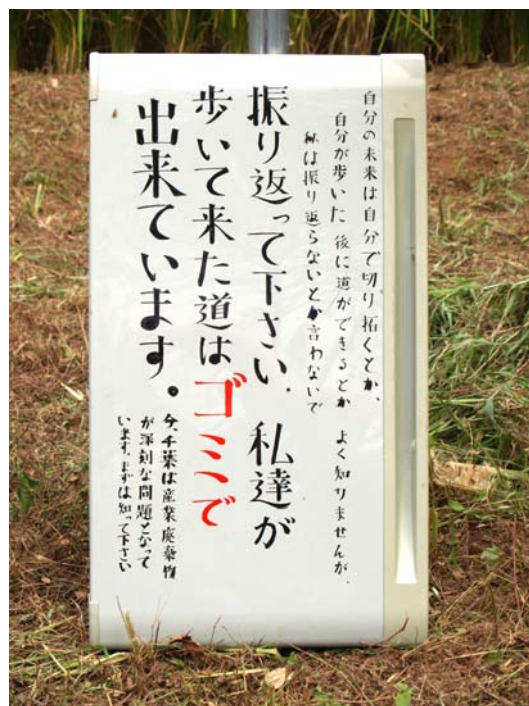 自分の未来は自分で切り拓くとか、
自分が歩いた後に道ができるとか よく知りませんが、
私は振り返らないとか言わないで
振り返って下さい。私達が
歩いて来た道はゴミで
出来ています。
今、千葉は産業廃棄物
が深刻な問題となって
います。まずは知って下さい